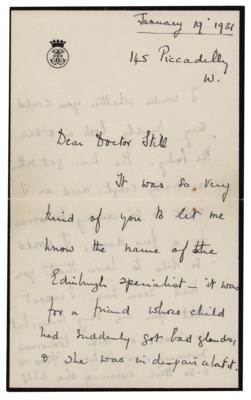 January 19th 1931
145 Piccadilly
W.
Dear Doctor Still
It was so very
kind of you to let me
know the name of the
Edinburgh specialist - it was
for a friend whose child
had suddenly got bad glands,
& she was in despair about it.